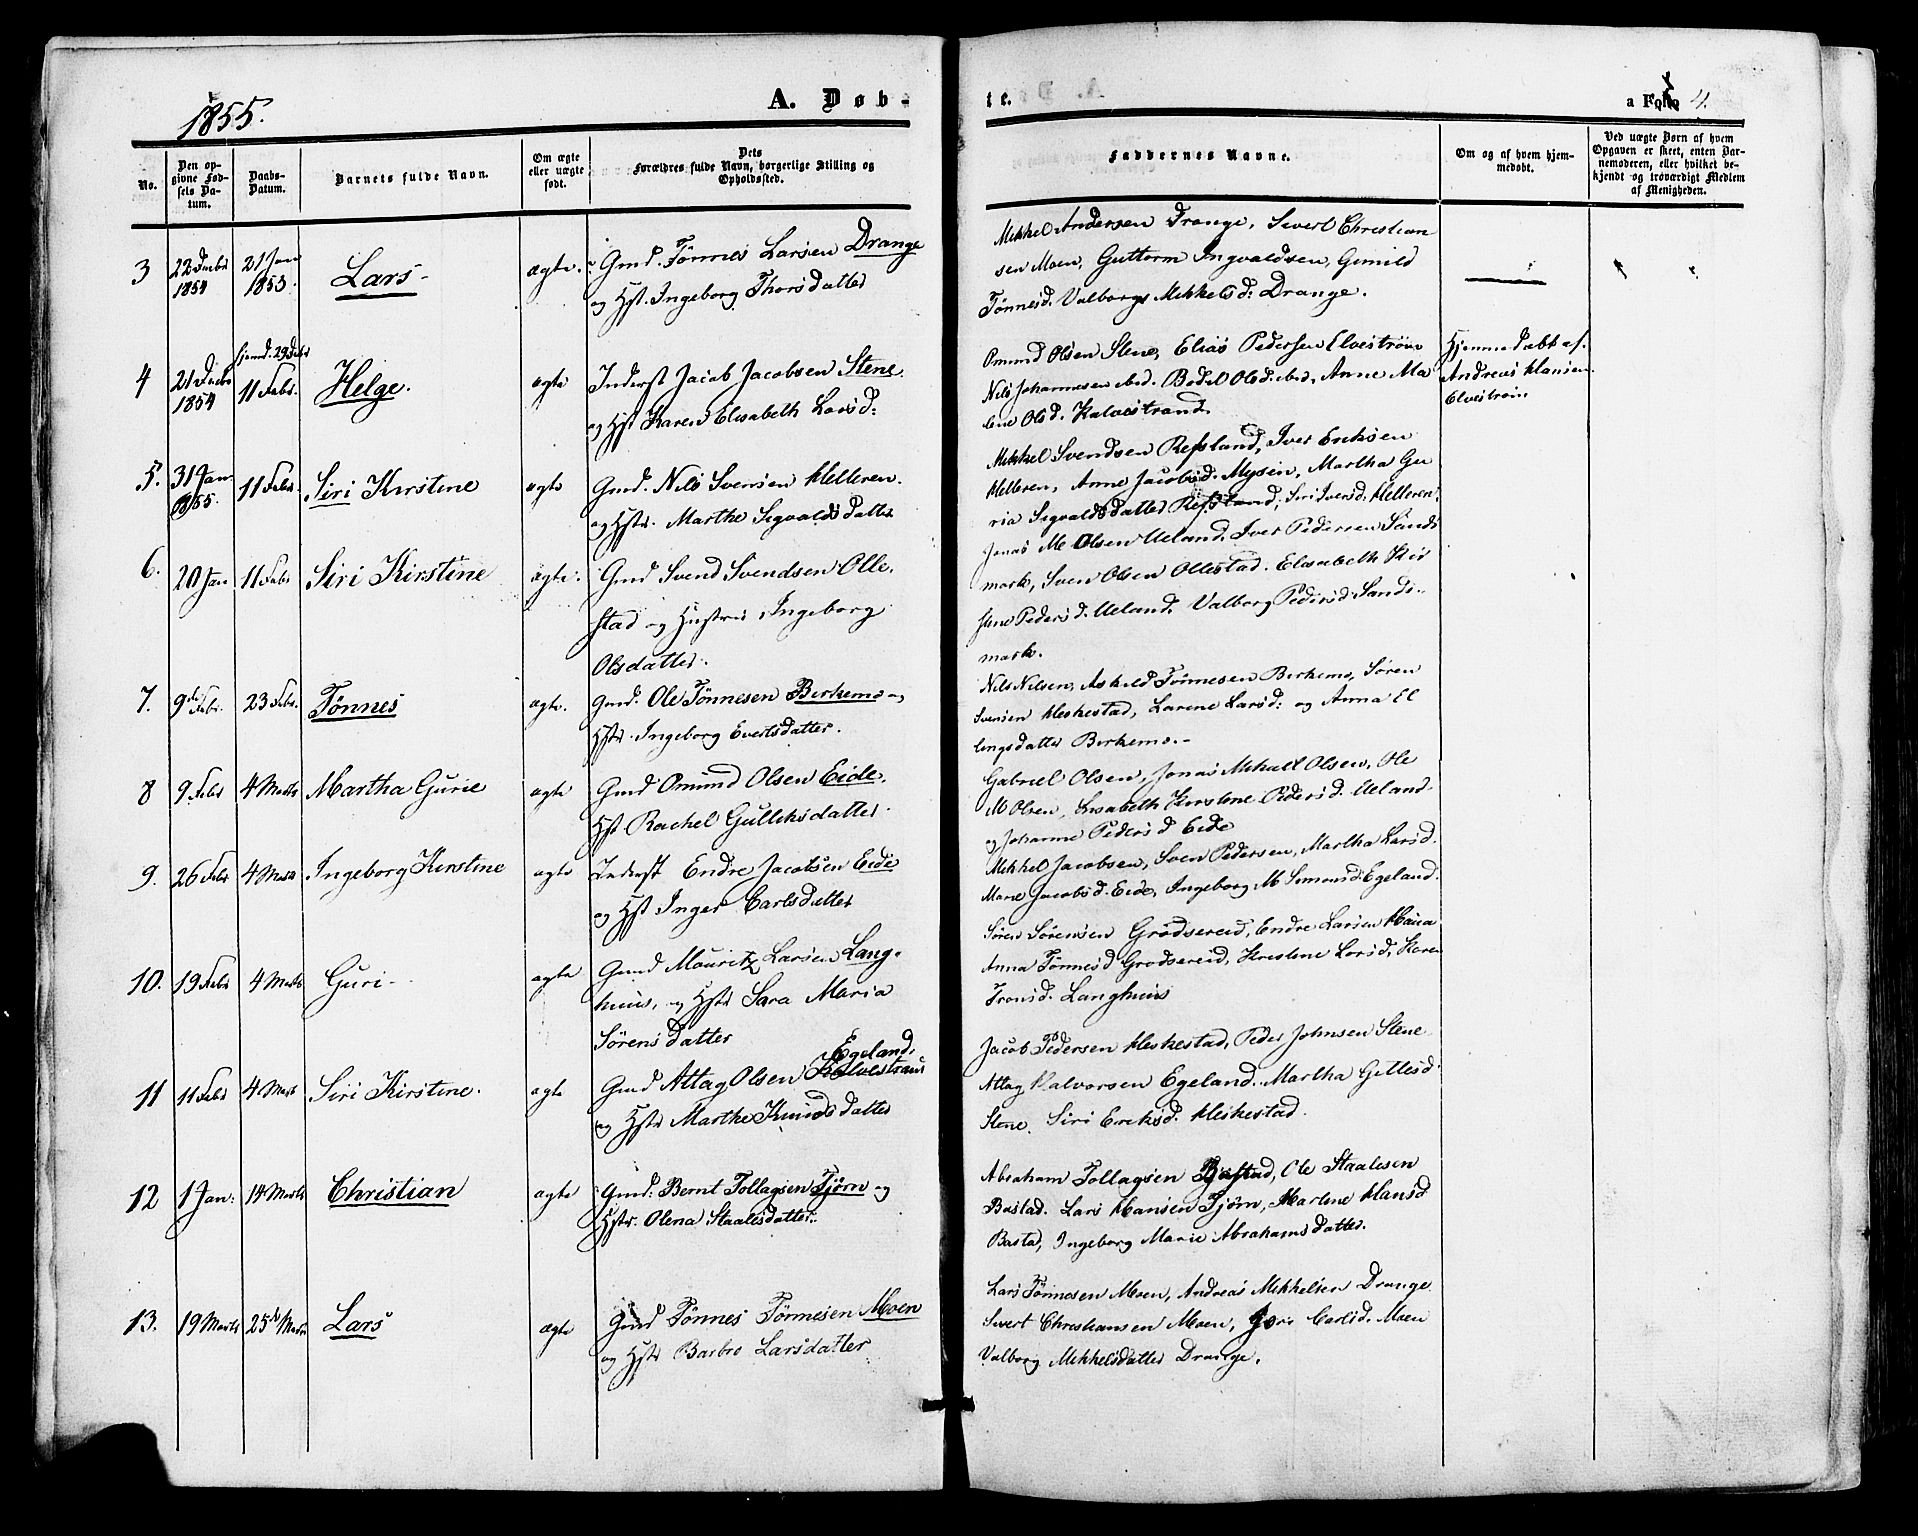 1855.
A. Døb-
te.
a Folio 4.
No.
Den op-
givne Fød-
sels Da-
tum.
Daabs-
Datum.
Barnets fulde Navn.
Om ægte
eller uægte
født.
Dets
Forældres fulde Navn, borgerlige Stilling og
Opholdssted.
Faddernes Navne.
Om og af hvem hjem-
medøbt.
Ved uægte Børn af hvem
Opgaven er skeet, enten Bar-
nemoderen, eller hvilket be-
kjendt og troværdigt Medlem
af Menigheden.
3
22 Decbr
1854
21 Jan
1855.
Lars
ægte.
Gmd. Tønnes Larsen Drange
og Hst. Ingeborg Thorsdatter
Mikkel Andersen Drange, Sivert Christian
sen Moen, Guttorm Ingvaldsen, Gunild
Tønnesd. Valborg Mikkelsd: Drange.
4
21 Decbr
1854
hjemd. 29 Decbr
11 Febr.
Helge.
ægte
Inderst Jacob Jacobsen Stene
og Hst Karen Elisabeth Larsd:
Omund Olsen Stene, Elias Pedersen Elvestrøm
Nils Johannesen ibid. Bodel Olsd. ibid, Anne Ma
lene Olsd. Kalvestrand.
Hjemmedøbt af
Andreas Hansen
Elvestrøm.
5.
31 Jan
1855.
11 Febr
Siri Kirstine
ægte
Gmd. Nils Svensen Helleren.
og Hstr. Marthe Sigvaldsdatter
Mikkel Svendsen Refsland, Iver Eriksen
Helleren, Anne Jacobsd. Mysen, Martha Gu
ria Sigvaldsdatter Refsland, Siri Iversd. Helleren.
6.
20 Jan
11 Febr
Siri Kirstine
ægte.
Gmd Svend Svendsen Olle
stad og Hustru Ingeborg
Olsdatter.
Jonas M Olsen Ueland. Iver Pedersen Sands
mark, Sven Olsen Ollestad. Elisabeth Kir
stine Pedersd. Ueland. Valborg Pedersd. Sands
mark.
7.
9de Febr.
23 Febr.
Tønnes
ægte.
Gmd. Ole Tønnesen Birkemo og
Hstr. Ingeborg Evertsdatter.
Nils Nilsen, Askild Tønnesen Birkemo, Søren
Svensen Heskestad, Larene Larsd: og Anna El
lingsdatter Birkemo.
8
9 Febr
4 Marts
Martha Gurie
ægte
Gmd Omund Olsen Eide.
Hst Rachel Gulleksdatter.
Gabriel Olsen, Jonas Mikall Olsen, Ole
M Olsen, Lisabeth Kirstine Pedersd. Ueland
og Johanne Pedersd Eide
9.
26 Febr
4 Marts
Ingeborg Kirstine
ægte
Inderst Endre Jacobsen Eide
og Hst Inger Carlsdatter
Mikkel Jacobsen, Sven Pedersen, Martha Larsd.
Marie Jacobsd. Eide, Ingeborg M Simonsd. Egeland.
10.
19 Febr
4 Marts
Guri
ægte
Gmd Mouritz Larsen Lang-
huus, og Hstr Sara Maria
Sørensdatter
Søren Sørensen Grødsereid, Endre Larsen
Anna Tønnesd Grødsereid, Kirstene Larsd, Karen
Langhuus
11
11 Febr
4 Marts
Siri Kirstine.
ægte
Egeland.
Gmd Attag Olsen Kalvestrand
og Hstr Marthe Knudsdatter
Jacob Pedersen Heskestad, Peder Johnsen Stene
Attag Halvorsen Egeland. Martha Gittlesd.
Stene. Siri Eriksd. Heskestad.
12
1 Jan.
14 Marts
Christian
ægte
Gmd: Bernt Tollagsen Tjørn og
Hstr. Olena Staalesdatter.
Abraham Tollagsen, Ole Staalesen
Bastad. Lars Hansen Tjørn, Marlene Hansd
Basta, Ingeborg Marie Abrahamsdatter.
13.
19 Marts
25de Marts
Lars
ægte
Gmd Tønnes Tønnesen Moen
og Hstr Barbro Larsdatter
Lars Tønnesen Moen, Andreas Mikkelsen Drange
Sivert Christiansen Moen, Carlsd. Moen
Valborg Mikkelsdatter Drange.